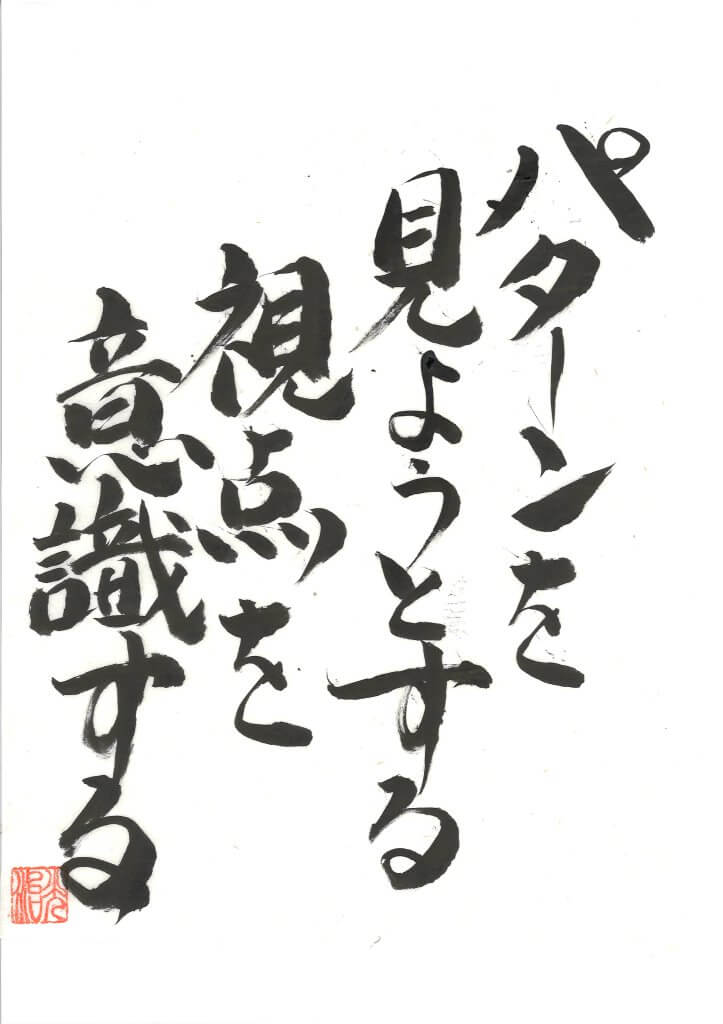 パターンを
見ようとする
視点を
意識する